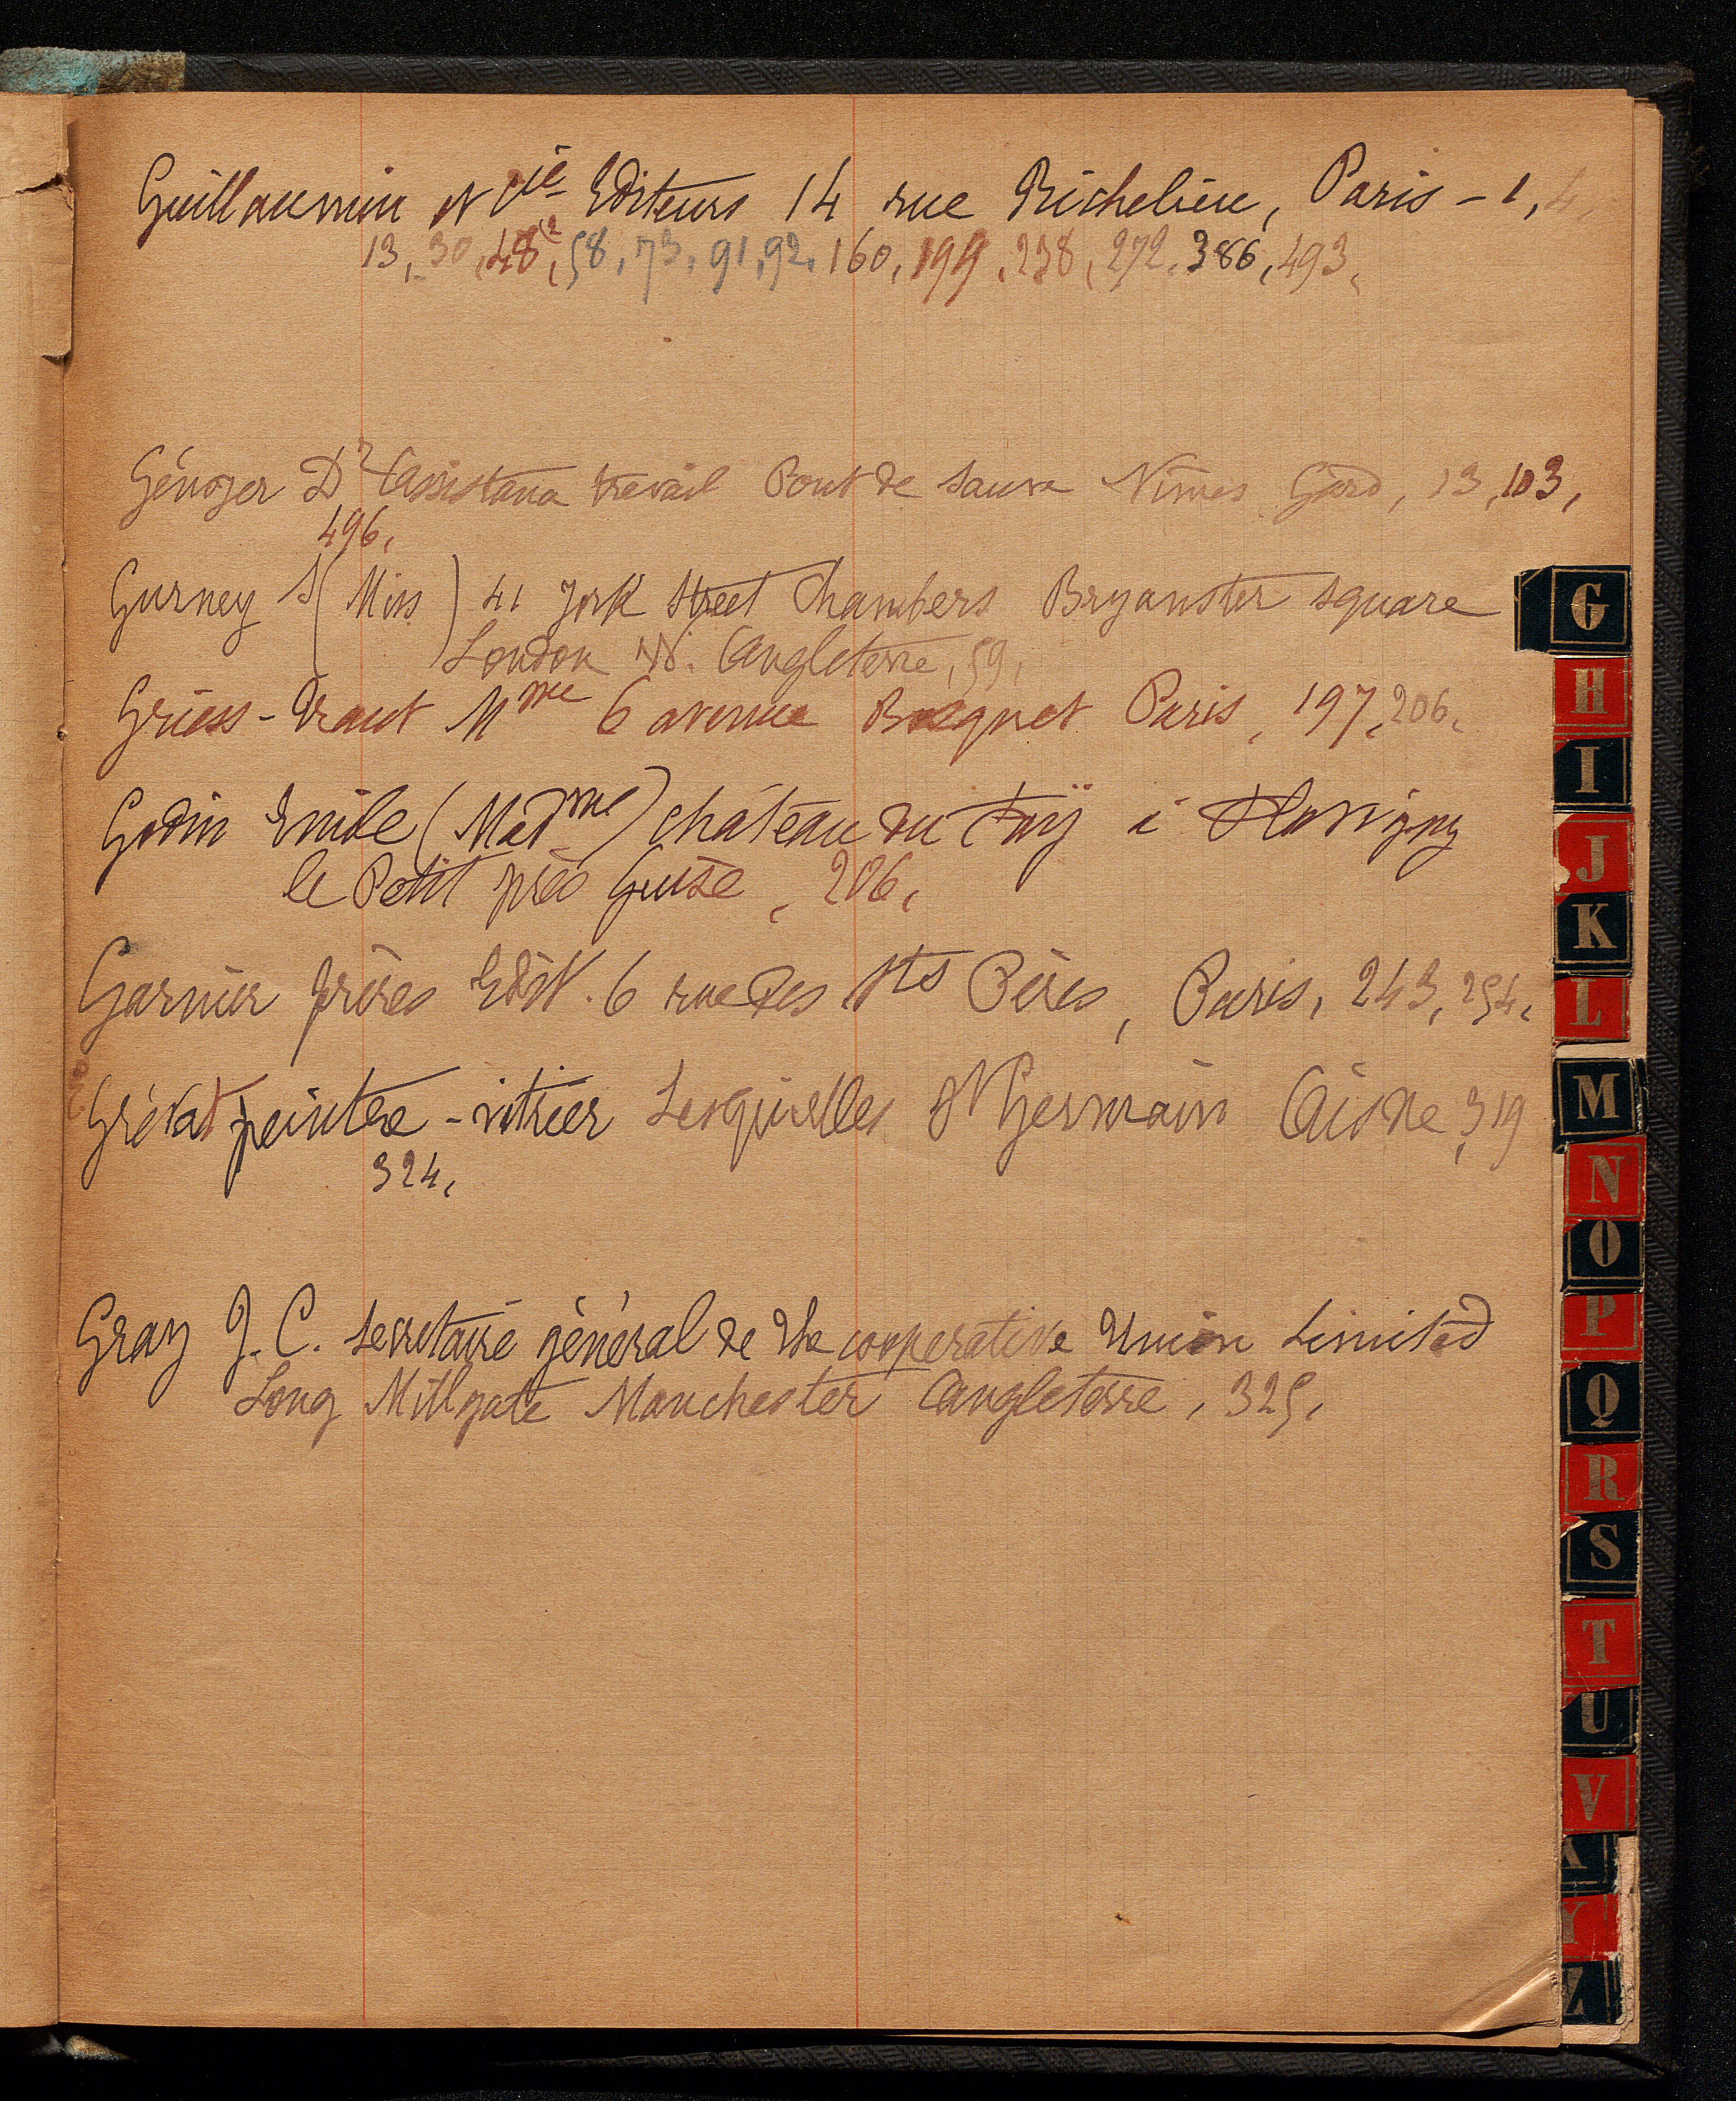 Guillaumin et Cie Editeurs 14 rue Richelieu, Paris - 1, 4,
13, 30, 48(2, 58, 73, 91, 92, 160, 199, 238, 272, 386, 493,
Génoyer Dr Assistance travail Pont de Sauve Nîmes Gard, 13, 103,
496,
Gurney S (Miss) 41 York Street Chambers Bryanster square
London W. Angleterre, 59,
Griess-Traut Mme 6 avenue Bosquet Paris, 197, 206,
Godin Emile (Madme) château du Faÿ à Flavigny
le Petit près Guise, 206,
Garnier frères Edit. 6 rue des Sts Pères, Paris, 243, 254,
Grévat peintre-vitrier Lesquielles St Germain Aisne, 319
324,
Gray J. C. Secrétaire général de The cooperative Union Limited
Long Millgate Manchester Angleterre, 325,
G
H
I
J
K
L
M
N
O
P
Q
R
S
T
U
V
X
Y
Z